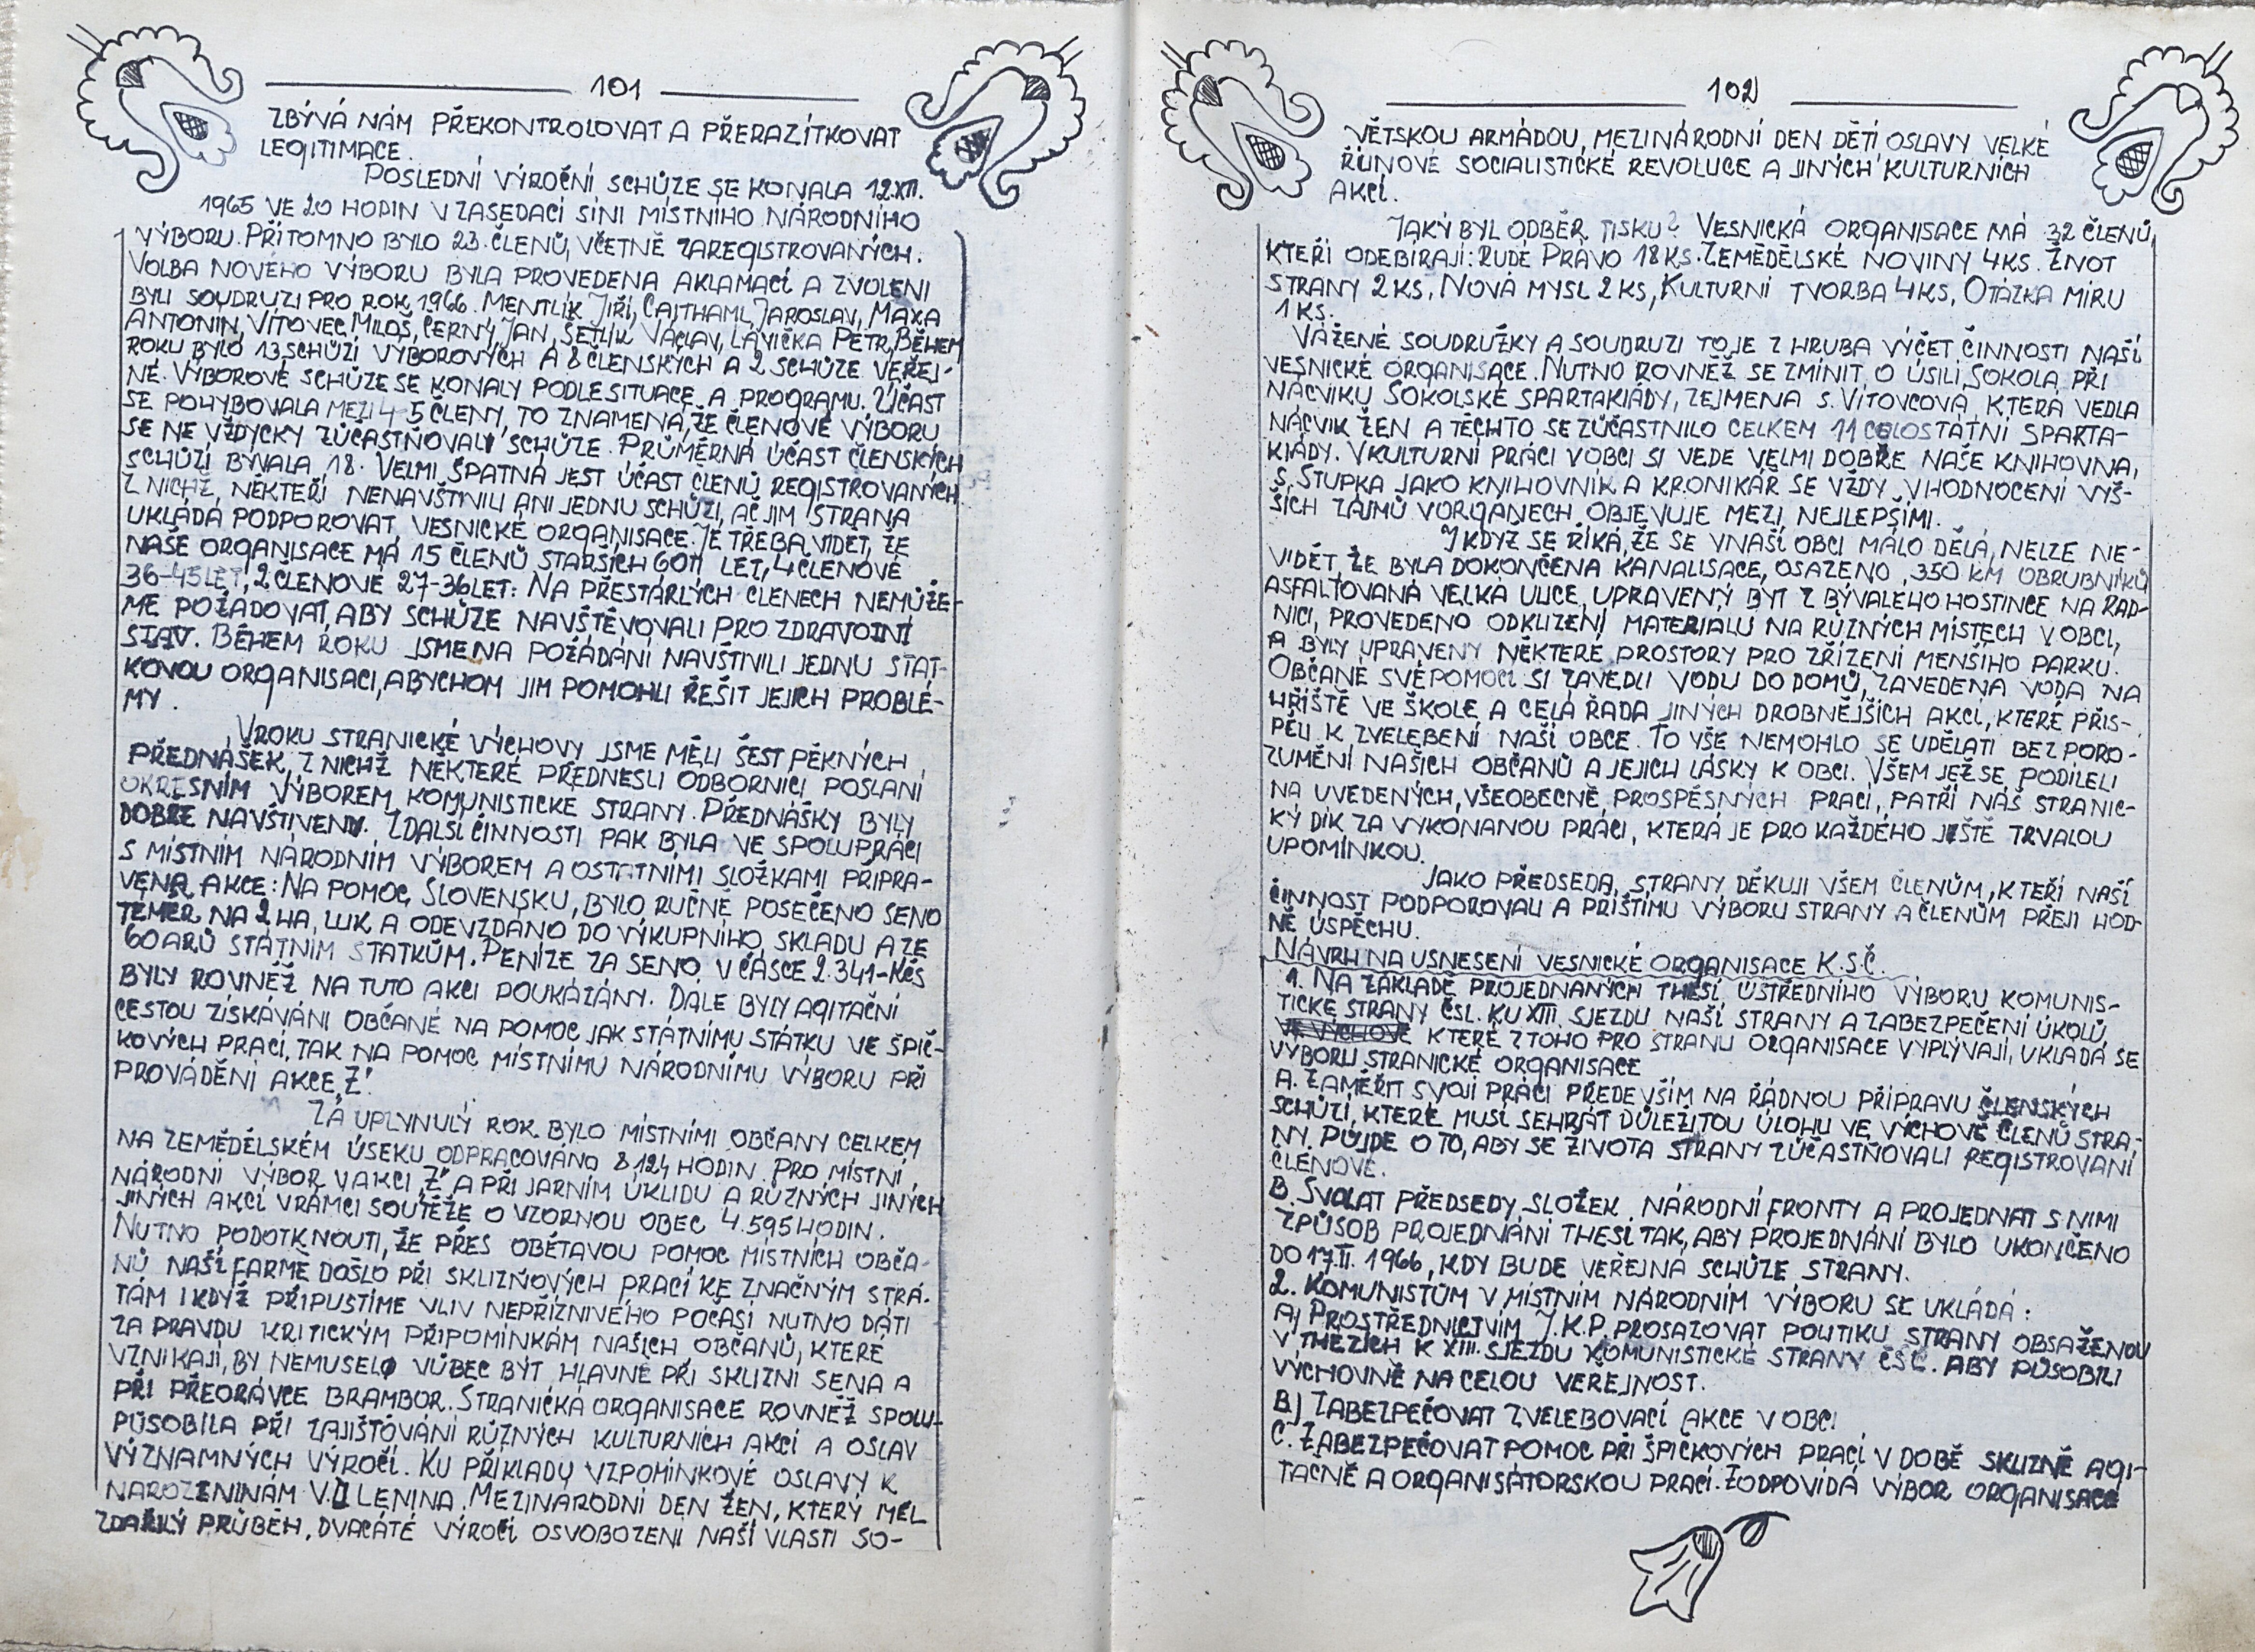 101
ZBÝVÁ NÁM PŘEKONTROLOVAT A PŘERAZÍTKOVAT
LEGITIMACE.
POSLEDNÍ VÝROČNÍ SCHŮZE SE KONALA 12.XII.
1965 VE 20 HODIN V ZASEDACÍ SÍNI MÍSTNÍHO NÁRODNÍHO
VÝBORU. PŘÍTOMNO BYLO 23. ČLENŮ, VČETNĚ ZAREGISTROVANÝCH.
VOLBA NOVÉHO VÝBORU BYLA PROVEDENA AKLAMACÍ A ZVOLENI
BYLI SOUDRUZI PRO ROK 1966. MENTLÍK JIŘÍ, CAJTHAML JAROSLAV, MAXA
ANTONÍN, VÍTOVEC MILOŠ, ČERNÝ JAN, ŠETLÍK VÁCLAV, LAVIČKA PETR, BĚHEM
ROKU BYLO 13 SCHŮZÍ VÝBOROVÝCH A 8 ČLENSKÝCH A 2 SCHŮZE VEŘEJ-
NÉ. VÝBOROVÉ SCHŮZE SE KONALY PODLE SITUACE A PROGRAMU. ÚČAST
SE POHYBOVALA MEZI 4-5 ČLENY, TO ZNAMENÁ, ŽE ČLENOVÉ VÝBORU
SE NE VŽDYCKY ZÚČASTŇOVALI SCHŮZE. PRŮMĚRNÁ ÚČAST ČLENSKÝCH
SCHŮZÍ BÝVALA 18. VELMI ŠPATNÁ JEST ÚČAST ČLENŮ REGISTROVANÝCH
Z NICHŽ, NĚKTEŘÍ NENAVŠTÍVILI ANI JEDNU SCHŮZI, AČ JIM STRANA
UKLÁDÁ PODPOROVAT VESNICKÉ ORGANISACE. JE TŘEBA VIDĚT, ŽE
NAŠE ORGANISACE MÁ 15 ČLENŮ STARŠÍCH 60TI LET, 4 ČLENOVÉ
36-45 LET, 2 ČLENOVÉ 27-36 LET: NA PŘESTÁRLÝCH ČLENECH NEMŮŽE-
ME POŽADOVAT, ABY SCHŮZE NAVŠTĚVOVALI PRO ZDRAVOTNÍ
STAV. BĚHEM ROKU JSME NA POŽÁDÁNÍ NAVŠTÍVILI JEDNU STAT-
KOVOU ORGANISACI, ABYCHOM JIM POMOHLI ŘEŠIT JEJICH PROBLÉ-
MY.
V ROKU STRANICKÉ VÝCHOVY JSME MĚLI ŠEST PĚKNÝCH
PŘEDNÁŠEK, Z NICHŽ NĚKTERÉ PŘEDNESLI ODBORNÍCI POSLANÍ
OKRESNÍM VÝBOREM KOMUNISTICKÉ STRANY. PŘEDNÁŠKY BYLY
DOBŘE NAVŠTÍVENY. Z DALŠÍ ČINNOSTI PAK BYLA VE SPOLUPRÁCI
S MÍSTNÍM NÁRODNÍM VÝBOREM A OSTATNÍMI SLOŽKAMI PŘIPRA-
VENA AKCE: NA POMOC SLOVENSKU, BYLO RUČNĚ POSEČENO SENO
TÉMĚŘ NA 2 HA, LUK A ODEVZDÁNO DO VÝKUPNÍHO SKLADU A ZE
60 ARŮ STÁTNÍM STATKŮM. PENÍZE ZA SENO V ČÁSCE 2.341-KČS
BYLY ROVNĚŽ NA TUTO AKCI POUKÁZÁNY. DÁLE BYLY AGITAČNÍ
CESTOU ZÍSKÁVÁNI OBČANÉ NA POMOC JAK STÁTNÍMU STATKU VE ŠPIČ-
KOVÝCH PRACÍ, TAK NA POMOC MÍSTNÍMU NÁRODNÍMU VÝBORU PŘI
PROVÁDĚNÍ AKCE „Z".
ZA UPLYNULÝ ROK BYLO MÍSTNÍMI OBČANY CELKEM
NA ZEMĚDĚLSKÉM ÚSEKU ODPRACOVÁNO 8124 HODIN. PRO MÍSTNÍ
NÁRODNÍ VÝBOR V AKCI „Z" A PŘI JARNÍM ÚKLIDU A RŮZNÝCH JINÝCH
JINÝCH AKCÍ V RÁMCI SOUTĚŽE O VZORNOU OBEC 4.595 HODIN.
NUTNO PODOTKNOUTI, ŽE PŘES OBĚTAVOU POMOC MÍSTNÍCH OBČA-
NŮ NAŠÍ FARMĚ DOŠLO PŘI SKLIZŇOVÝCH PRACÍ KE ZNAČNÝM STRÁ-
TÁM I KDYŽ PŘIPUSTÍME VLIV NEPŘÍZNIVÉHO POČASÍ NUTNO DÁTI
ZA PRAVDU KRITICKÝM PŘIPOMÍNKÁM NAŠICH OBČANŮ, KTERÉ
VZNIKAJÍ, BY NEMUSELO VŮBEC BÝT HLAVNĚ PŘI SKLIZNI SENA A
PŘI PŘEORÁVCE BRAMBOR. STRANICKÁ ORGANISACE ROVNĚŽ SPOLU-
PŮSOBILA PŘI ZAJIŠŤOVÁNÍ RŮZNÝCH KULTURNÍCH AKCÍ A OSLAV
VÝZNAMNÝCH VÝROČÍ. KU PŘÍKLADU VZPOMÍNKOVÉ OSLAVY K
NAROZENINÁM V.I LENINA. MEZINÁRODNÍ DEN ŽEN, KTERÝ MĚL
ZDAŘILÝ PRŮBĚH, DVACÁTÉ VÝROČÍ OSVOBOZENÍ NAŠÍ VLASTI SO-
102
VĚTSKOU ARMÁDOU, MEZINÁRODNÍ DEN DĚTÍ OSLAVY VELKÉ
ŘIJNOVÉ SOCIALISTICKÉ REVOLUCE A JINÝCH KULTURNÍCH
AKCÍ.
JAKÝ BYL ODBĚR TISKU? VESNICKÁ ORGANISACE MÁ 32 ČLENŮ,
KTEŘÍ ODEBÍRAJÍ: RUDÉ PRÁVO 18 KS. ZEMĚDĚLSKÉ NOVINY 4 KS. ŽIVOT
STRANY 2 KS, NOVÁ MYSL 2 KS, KULTURNÍ TVORBA 4 KS, OTÁZKA MÍRU
1 KS.
VÁŽENÉ SOUDRUŽKY A SOUDRUZI TO JE Z HRUBA VÝČET ČINNOSTI NAŠÍ
VESNICKÉ ORGANISACE. NUTNO ROVNĚŽ SE ZMÍNIT O ÚSILÍ SOKOLA PŘI
NÁCVIKU SOKOLSKÉ SPARTAKIÁDY, ZEJMÉNA S. VÍTOVCOVÁ, KTERÁ VEDLA
NÁCVIK ŽEN A TĚCHTO SE ZÚČASTNILO CELKEM 11 CELOSTÁTNÍ SPARTA-
KIÁDY. V KULTURNÍ PRÁCI V OBCI SI VEDE VELMI DOBŘE NAŠE KNIHOVNA,
S. STUPKA JAKO KNIHOVNÍK A KRONIKÁŘ SE VŽDY V HODNOCENÍ VYŠ-
ŠÍCH ZÁJMŮ V ORGANECH OBJEVUJE MEZI NEJLEPŠÍMI.
I KDYŽ SE ŘÍKÁ, ŽE SE V NAŠÍ OBCI MÁLO DĚLÁ, NELZE NE-
VIDĚT, ŽE BYLA DOKONČENA KANALISACE, OSAZENO ,350 KM OBRUBNÍKŮ
ASFALTOVANÁ VELKÁ ULICE, UPRAVENÝ BYT Z BÝVALÉHO HOSTINCE NA RAD-
NICI, PROVEDENO ODKLIZENÍ MATERIALU NA RŮZNÝCH MÍSTECH V OBCI,
A BYLY UPRAVENY NĚKTERÉ PROSTORY PRO ZŘÍZENÍ MENŠÍHO PARKU.
OBČANÉ SVÉPOMOCI SI ZAVEDLI VODU DO DOMŮ, ZAVEDENA VODA NA
HŘIŠTĚ VE ŠKOLE A CELÁ ŘADA JINÝCH DROBNĚJŠÍCH AKCÍ, KTERÉ PŘIS-
PĚLI K ZVELEBENÍ NAŠÍ OBCE. TO VŠE NEMOHLO SE UDĚLATI BEZ PORO-
ZUMĚNÍ NAŠICH OBČANŮ A JEJICH LÁSKY K OBCI. VŠEM JEŽ SE PODÍLELI
NA UVEDENÝCH, VŠEOBECNĚ PROSPĚŠNÝCH PRACÍ, PATŘÍ NÁŠ STRANIC-
KÝ DÍK ZA VYKONANOU PRÁCI, KTERÁ JE PRO KAŽDÉHO JEŠTĚ TRVALOU
UPOMÍNKOU.
JAKO PŘEDSEDA STRANY DĚKUJI VŠEM ČLENŮM, KTEŘÍ NAŠÍ
ČINNOST PODPOROVALI A PŘÍŠTÍMU VÝBORU STRANY A ČLENŮM PŘEJI HOD-
NĚ ÚSPĚCHU.
NÁVRH NA USNESENÍ VESNICKÉ ORGANISACE K.S.Č.
1. NA ZÁKLADĚ PROJEDNANÝCH THESÍ ÚSTŘEDNÍHO VÝBORU KOMUNIS-
TICKÉ STRANY ČSL. KU XIII. SJEZDU NAŠÍ STRANY A ZABEZPEČENÍ ÚKOLŮ,
VE VÝCHOVĚ KTERÉ Z TOHO PRO STRANU ORGANISACE VYPLÝVAJÍ, UKLÁDÁ SE
VÝBORU STRANICKÉ ORGANISACE
A. ZAMĚŘIT SVOJI PRÁCI PŘEDEVŠÍM NA ŘÁDNOU PŘÍPRAVU ČLENSKÝCH
SCHŮZÍ, KTERÉ MUSÍ SEHRÁT DŮLEŽITOU ÚLOHU VE VÝCHOVĚ ČLENŮ STRA-
NY. PŮJDE O TO, ABY SE ŽIVOTA STRANY ZÚČASTŇOVALI REGISTROVANÍ
ČLENOVÉ.
B. SVOLAT PŘEDSEDY SLOŽEK NÁRODNÍ FRONTY A PROJEDNAT S NIMI
ZPŮSOB PROJEDNÁNÍ THESÍ TAK, ABY PROJEDNÁNÍ BYLO UKONČENO
DO 17.II. 1966, KDY BUDE VEŘEJNÁ SCHŮZE STRANY.
2. KOMUNISTŮM V MÍSTNÍM NÁRODNÍM VÝBORU SE UKLÁDÁ:
A) PROSTŘEDNICTVÍM J.K.P. PROSAZOVAT POLITIKU STRANY OBSAŽENOU
V THEZÍCH K XIII. SJEZDU KOMUNISTICKÉ STRANY ČSL. ABY PŮSOBILI
VÝCHOVNĚ NA CELOU VEŘEJNOST.
B.) ZABEZPEČOVAT ZVELEBOVACÍ AKCE V OBCI
C. ZABEZPEČOVAT POMOC PŘI ŠPIČKOVÝCH PRACÍ V DOBĚ SKLIZNĚ AGI-
TAČNĚ A ORGANISÁTORSKOU PRACÍ. ZODPOVÍDÁ VÝBOR ORGANISACE